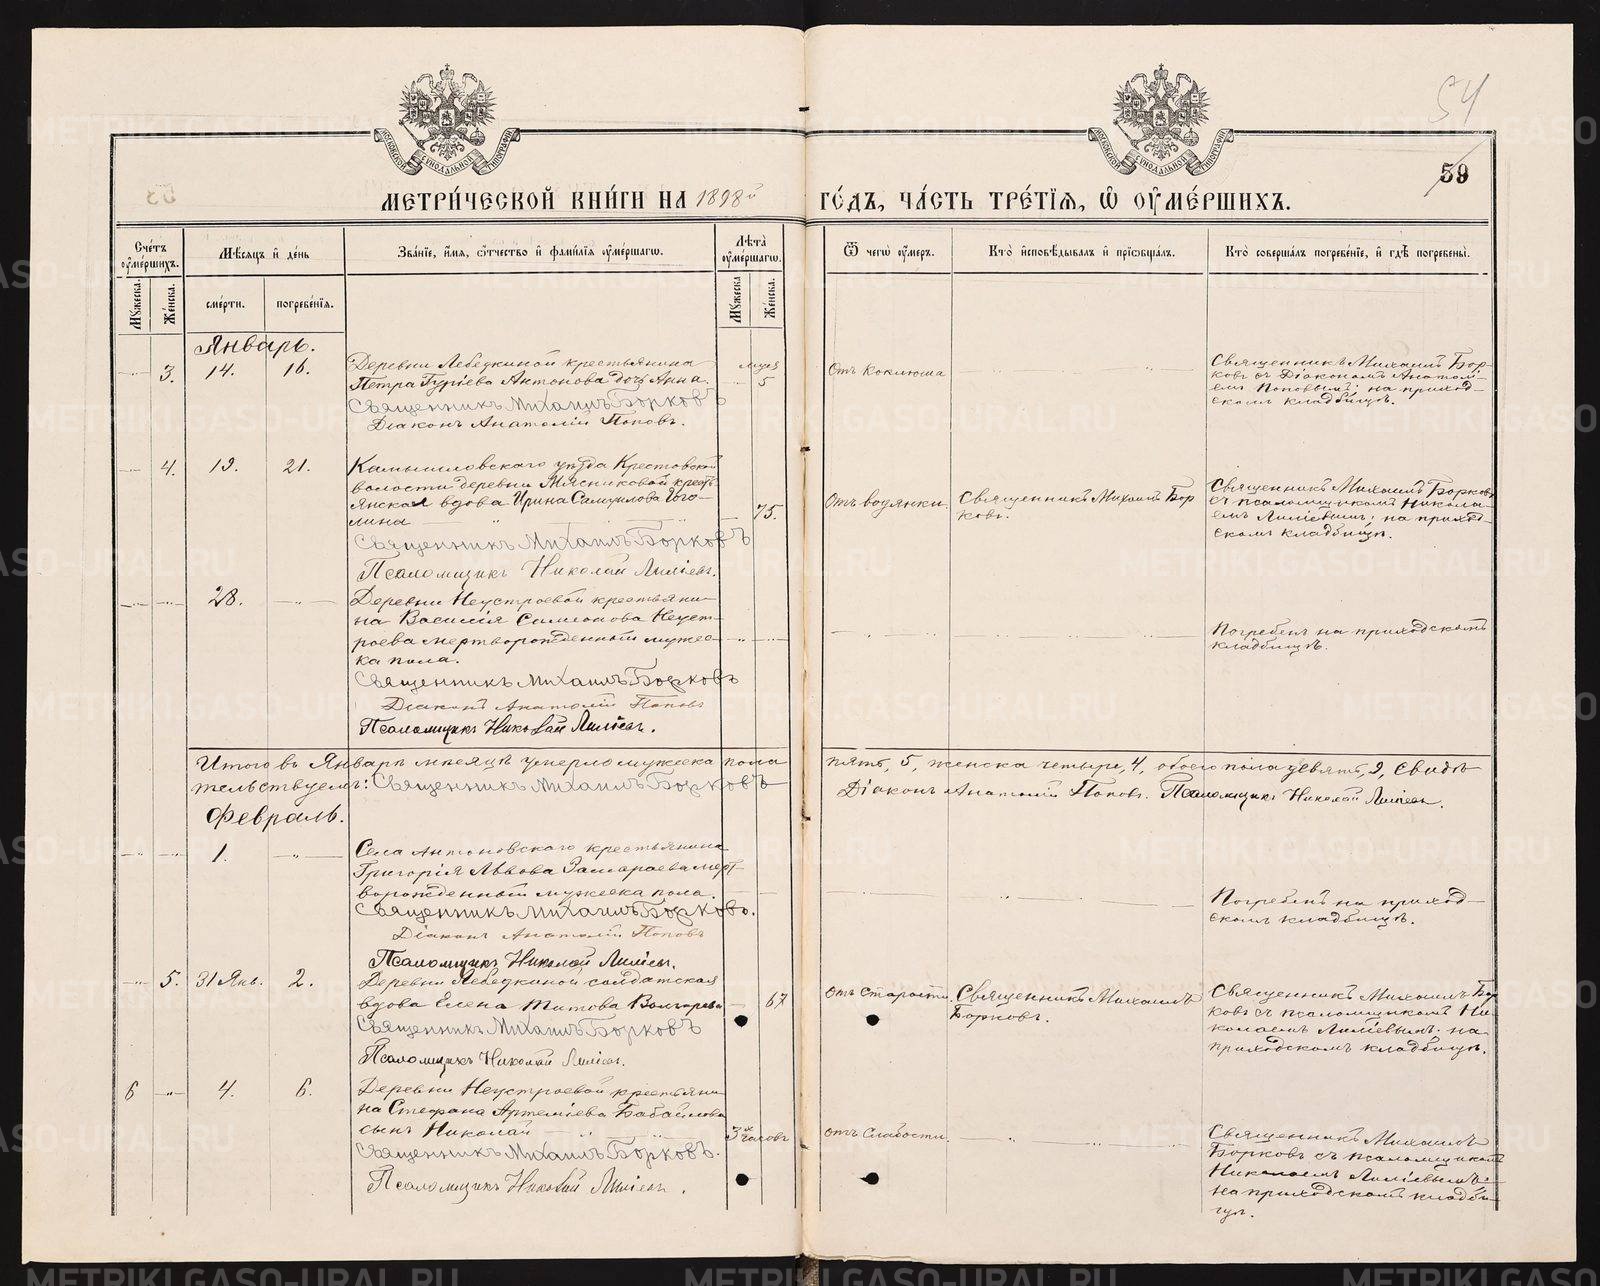 54
59
МЕТРИ́ЧЕСКОЙ КНИ́ГИ НА 1898й ГО́ДЪ, ЧА́СТЬ ТРЕ́ТІѦ, Ѡ҆ ОУ҆МЕ́РШИХЪ.
Сче́тъ оу҆ме́ршихъ.
Мꙋ́жеска.
Же́нска.
Мѣ́сѧцъ и҆ де́нь
сме́рти.
погребе́нїѧ.
Зва́нїе, и҆́мѧ, ѻ҆́тчество и҆ фами́лїѧ оу҆ме́ршагѡ.
Лѣ́та оу҆ме́ршагѡ.
Мꙋ́жеска
Же́нска.
Ѿ чегѡ̀ оу҆́меръ.
Кто̀ и҆сповѣ́дывалъ и҆ прїѡбща́лъ.
Кто̀ соверша́лъ погребе́нїе, и҆ гдѣ̀ погребены̀.
Январь.
3. 14. 16.
Деревни Лебедкиной крестьянина
Петра Гуріева Антонова дочь Анна.
Священникъ Михаилъ Борковъ
Діаконъ Анатолій Поповъ.
5
Отъ коклюша
Священникъ Михаилъ Бор-
ковъ съ Діакономъ Анатолі-
емъ Поповымъ; на приход-
скомъ кладбищѣ.
4. 19. 21.
Камышловскаго уѣзда Крестовской
волости деревни Мясниковой кресть-
янская вдова Ирина Самуилова Гого-
лина
Священникъ Михаилъ Борковъ
Псаломщикъ Николай Лиліевъ.
75.
Отъ водянки.
Священникъ Михаилъ Бор
ковъ.
Священникъ Михаилъ Борковъ
съ псаломщикомъ Никола-
емъ Лиліевымъ; на приход-
скомъ кладбищѣ.
28.
Деревни Неустроевой крестьяни-
на Василія Симеонова Неуст-
роева мертворожденный мужес-
ка пола.
Священникъ Михаилъ Борковъ
Діаконъ Анатолій Поповъ
Псаломщикъ Николай Лиліевъ.
Погребенъ на приходскомъ
кладбищѣ.
Итого въ Январѣ мѣсяцѣ умерло мужеска пола пять, 5, женска четыре, 4, обоего пола девять, 9, Свидѣ
тельствуемъ: Священникъ Михаилъ Борковъ Діаконъ Анатолій Поповъ. Псаломщикъ Николай Лиліевъ.
Февраль.
1.
Села Антоновского крестьянина
Григорія Львова Замараева мерт
ворожденный мужеска пола.
Священникъ Михаилъ Борковъ.
Діаконъ Анатолій Поповъ
Псаломщикъ Николай Лиліевъ.
Погребенъ на приход-
скомъ кладбищѣ.
5. 31 Янв. 2.
Деревни Лебедкиной солдатская
вдова Елена Титова
Священникъ Михаилъ Борковъ
Псаломщикъ Николай Лиліевъ.
67
Отъ старости.
Священникъ Михаилъ
Борковъ.
Священникъ Михаилъ Бор
ковъ съ псаломщикомъ Ни-
колаемъ Лиліевымъ: на
приходскомъ кладбищѣ.
6 4. 6.
Деревни Неустроевой крестьяни
на Стефана Артеміева Бабайлова
сынъ Николай
Священникъ Михаилъ Борковъ.
Псаломщикъ Николай Лиліевъ.
3 часовъ
Отъ слабости.
Священникъ Михаилъ
Борковъ съ псаломщикомъ
Николаемъ Лиліевымъ:
на приходскомъ кладби-
щѣ.
METRIKI.GASO-URAL.RU